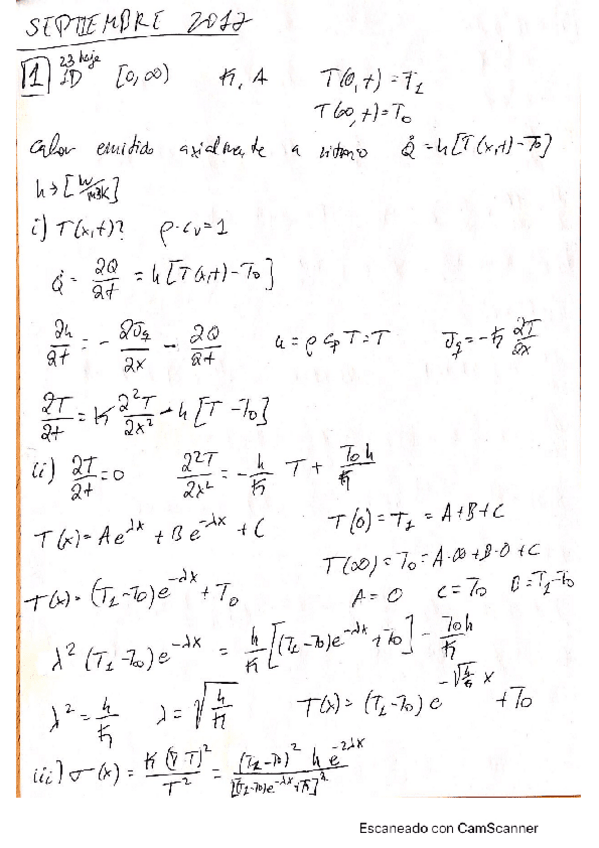 SEPTIEMBRE 2017
1 23 hoja 1D [0,∞) κ, A T(0,t)=T₁
T(∞,t)=T₀
Calor emitido axialmente a ritmo Q̇ = h[T(x,t)-T₀]
h→[W/m³K]
i) T(x,t)? ρ·cᵥ=1
Q̇ = ∂Q/∂t = h[T(x,t)-T₀]
∂u/∂t = -∂Jq/∂x - ∂Q/∂t u = ρ cp T = T Jq = -κ ∂T/∂x
∂T/∂t = κ ∂²T/∂x² - h[T-T₀]
ii) ∂T/∂t = 0 ∂²T/∂x² = -h/κ T + T₀h/κ
T(x) = A e^{λx} + B e^{-λx} + C T(0) = T₁ = A+B+C
T(∞) = T₀ = A·∞ + B·0 + C
T(x) = (T₁-T₀)e^{-λx} + T₀ A = 0 C = T₀ B = T₁-T₀
λ²(T₁-T₀)e^{-λx} = h/κ [(T₁-T₀)e^{-λx} + T₀] - T₀h/κ
λ² = h/κ λ = √(h/κ) T(x) = (T₁-T₀) e^{-√(h/κ) x} + T₀
iii) σ(x) = κ(∇T)²/T² = (T₁-T₀)² h e^{-2λx}/[(T₁-T₀)e^{-λx}+T₀]²
Escaneado con CamScanner